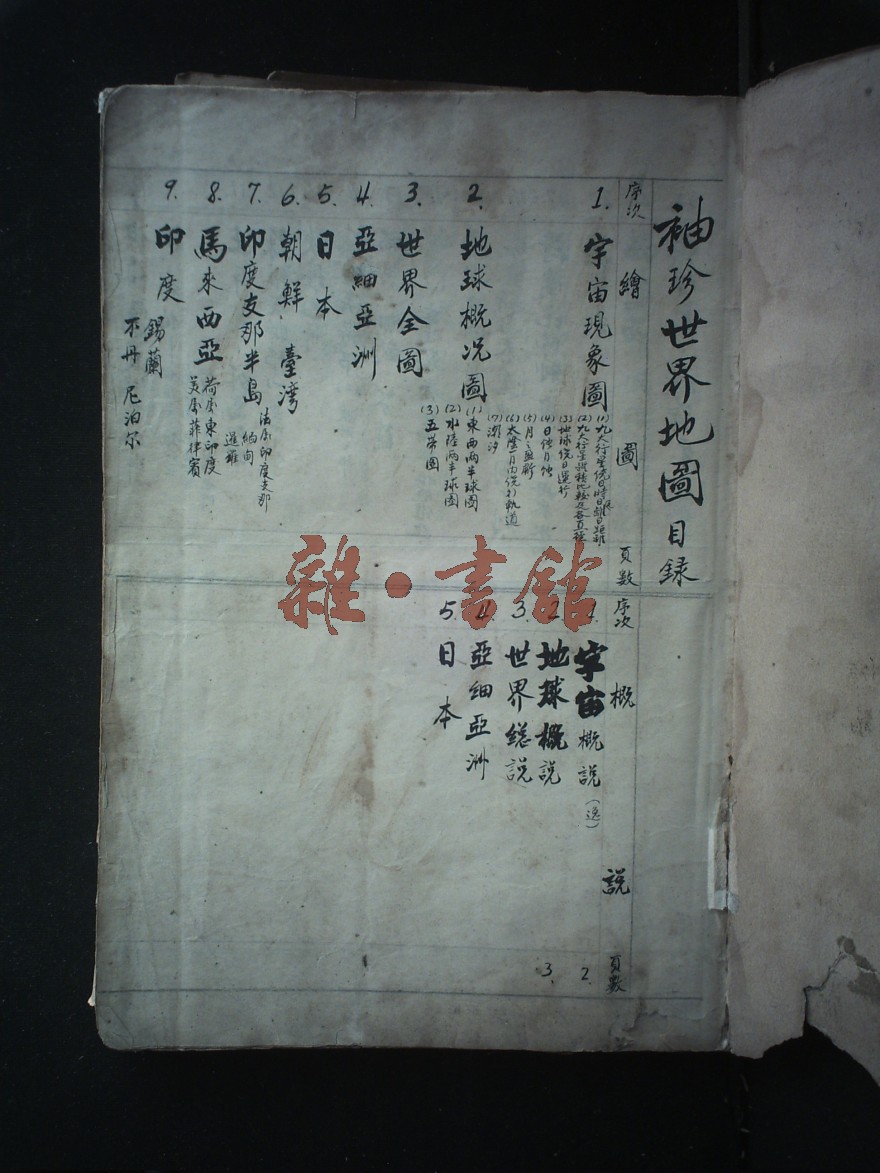 袖珍世界地圖目録
序次 繪圖 頁數
1. 宇宙現象圖
(2) 九大行星體積比較及各直徑
(3) 地球繞日運行
(4) 日蝕月蝕
(5) 月之盈虧
(6) 太陰一月內繞行軌道
(7) 潮汐
2. 地球概况圖
(1) 東西兩半球圖
(2) 水陸兩半球圖
(3) 五帶圖
3. 世界全圖
4. 亞細亞洲
5. 日本
6. 朝鮮 臺灣
7. 印度支那半島
法屬印度支那
緬甸
暹羅
8. 馬來西亞
荷屬東印度
美屬菲律賓
9. 印度
錫蘭
不丹 尼泊尔
序次 概說 頁數
1. 宇宙概說 2.
2. 地球概說 3.
3. 世界總說
4. 亞細亞洲
5. 日本
雜·書館